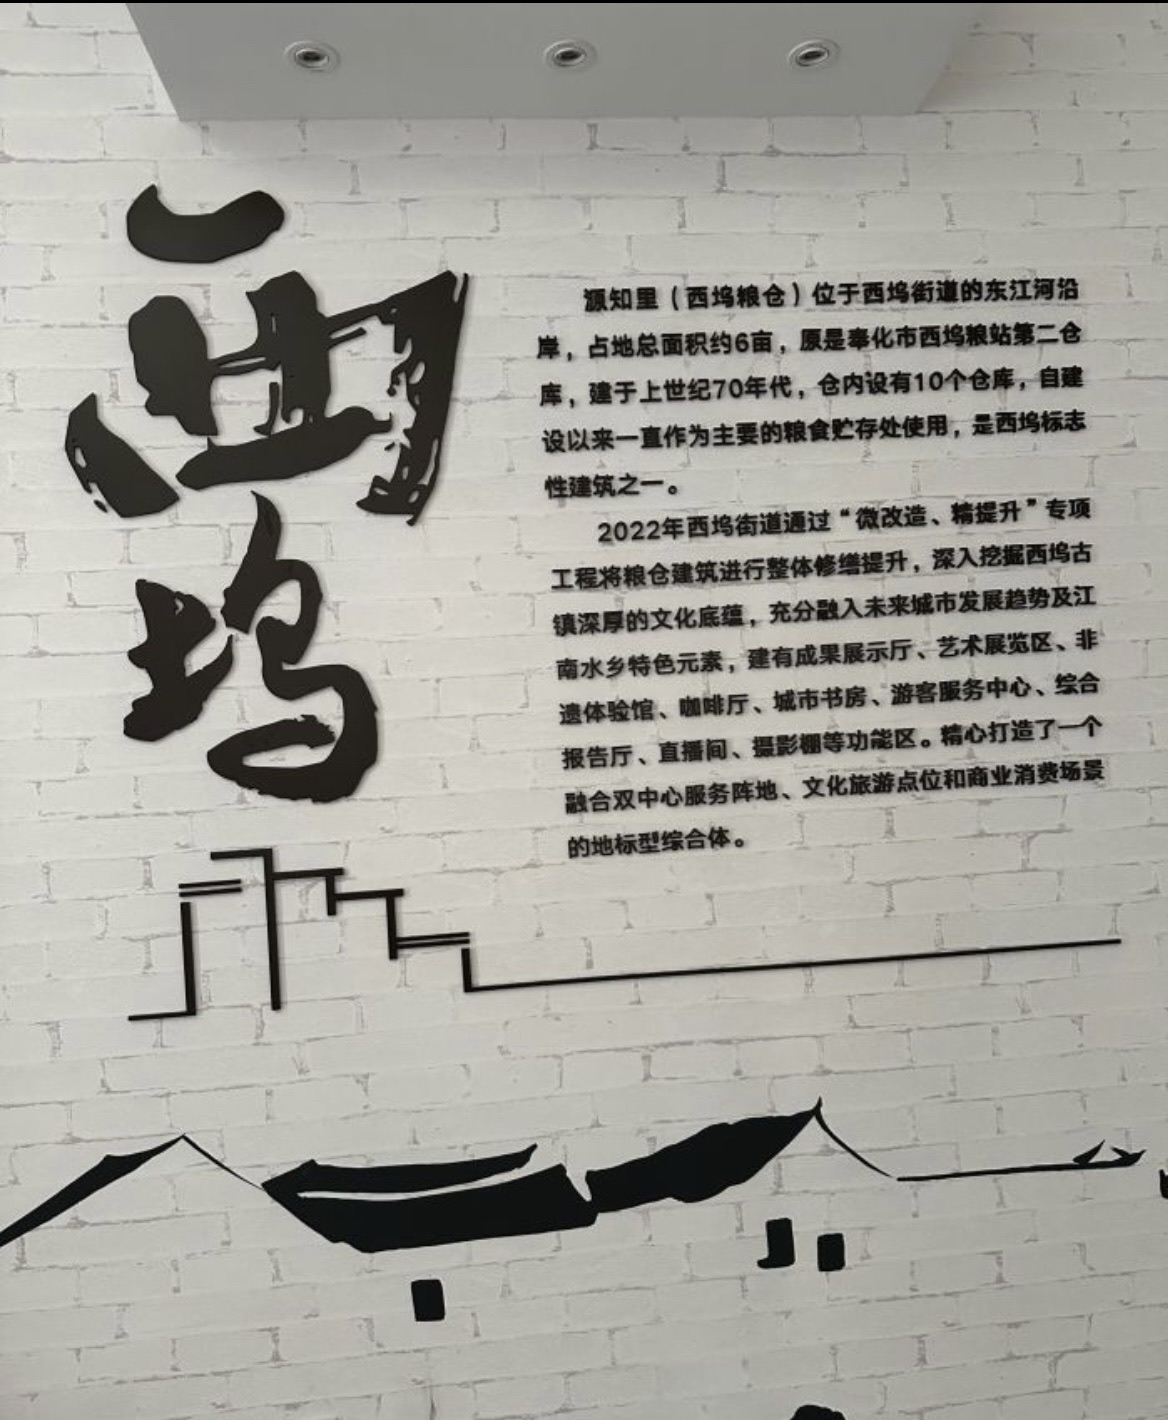 西坞
源知里（西坞粮仓）位于西坞街道的东江河沿
岸，占地总面积约6亩，原是奉化市西坞粮站第二仓
库，建于上世纪70年代，仓内设有10个仓库，自建
设以来一直作为主要的粮食贮存处使用，是西坞标志
性建筑之一。
2022年西坞街道通过“微改造、精提升”专项
工程将粮仓建筑进行整体修缮提升，深入挖掘西坞古
镇深厚的文化底蕴，充分融入未来城市发展趋势及江
南水乡特色元素，建有成果展示厅、艺术展览区、非
遗体验馆、咖啡厅、城市书房、游客服务中心、综合
报告厅、直播间、摄影棚等功能区。精心打造了一个
融合双中心服务阵地、文化旅游点位和商业消费场景
的地标型综合体。